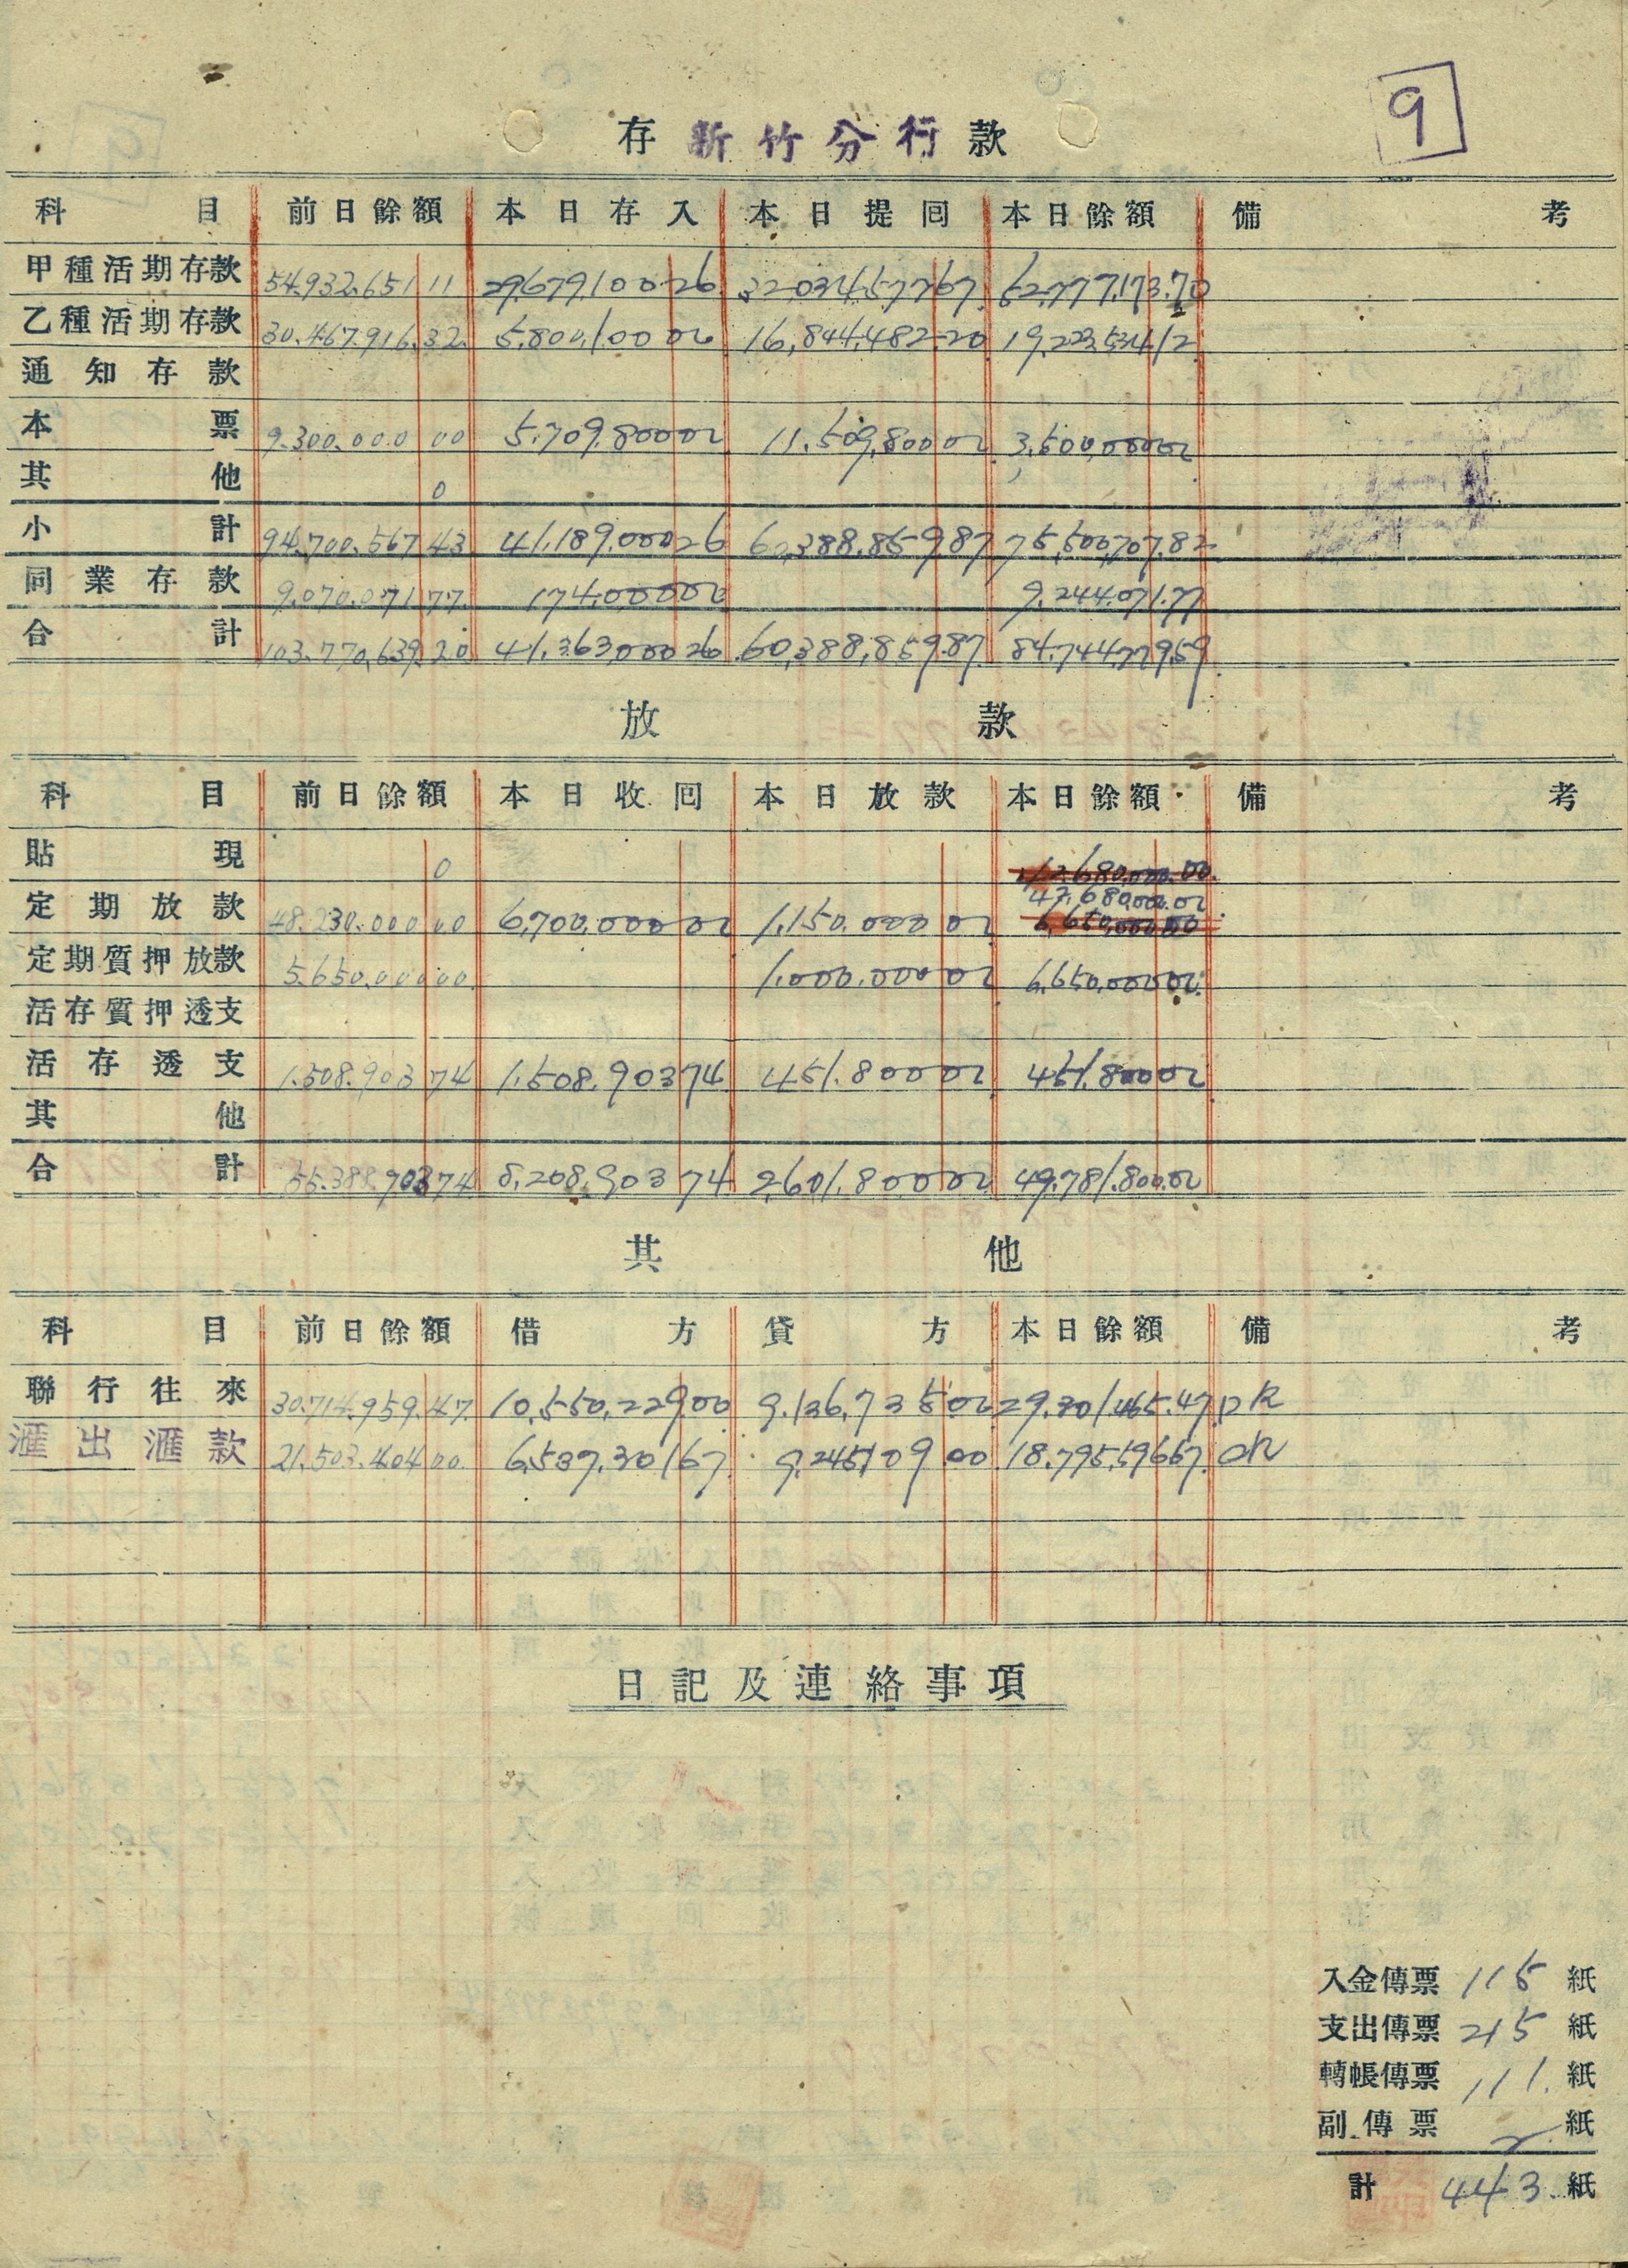 9
存 新竹分行 款
科目 前日餘額 本日存入 本日提囘 本日餘額 備考
甲種活期存款 54,932,651 11 29,679,100 26 32,034,577 67 52,777,173.70
乙種活期存款 30,467,916.32 5,800,100 00 16,844,482 20 19,223,534 12
通知存款
本票 9,300,000 00 5,709,800 00 11,509,800 00 3,500,000 00
其他 0
小計 94,700,567 43 41,189,000 26 60,388,859.87 75,500,707.82
同業存款 9,070,071 77 174,000 00 9,244,071.77
合計 103,770,639.20 41,363,000 26 60,388,859.87 84,744,779.59
放款
科目 前日餘額 本日收囘 本日放款 本日餘額 備考
貼現 0 42,680,000.00
定期放款 48,230,000 00 6,700,000 00 1,150,000 00 42,680,000.00 6,650,000 00
定期質押放款 5,650,000 00 1,000,000 00 6,650,000 00
活存質押透支
活存透支 1,508,903 74 1,508,903 74 451,800 00 451,800 00
其他
合計 55,388,903 74 8,208,903 74 2,601,800 00 49,781,800.00
其他
科目 前日餘額 借方 貸方 本日餘額 備考
聯行往來 30,714,959.47 10,550,229 00 9,136,735 00 29,301,465.47 DR
滙出滙款 21,503,404 00 6,537,301 67 9,245,109 00 18,795,596 67 CR
日記及連絡事項
入金傳票 115 紙
支出傳票 215 紙
轉帳傳票 111 紙
副傳票 2 紙
計 443 紙